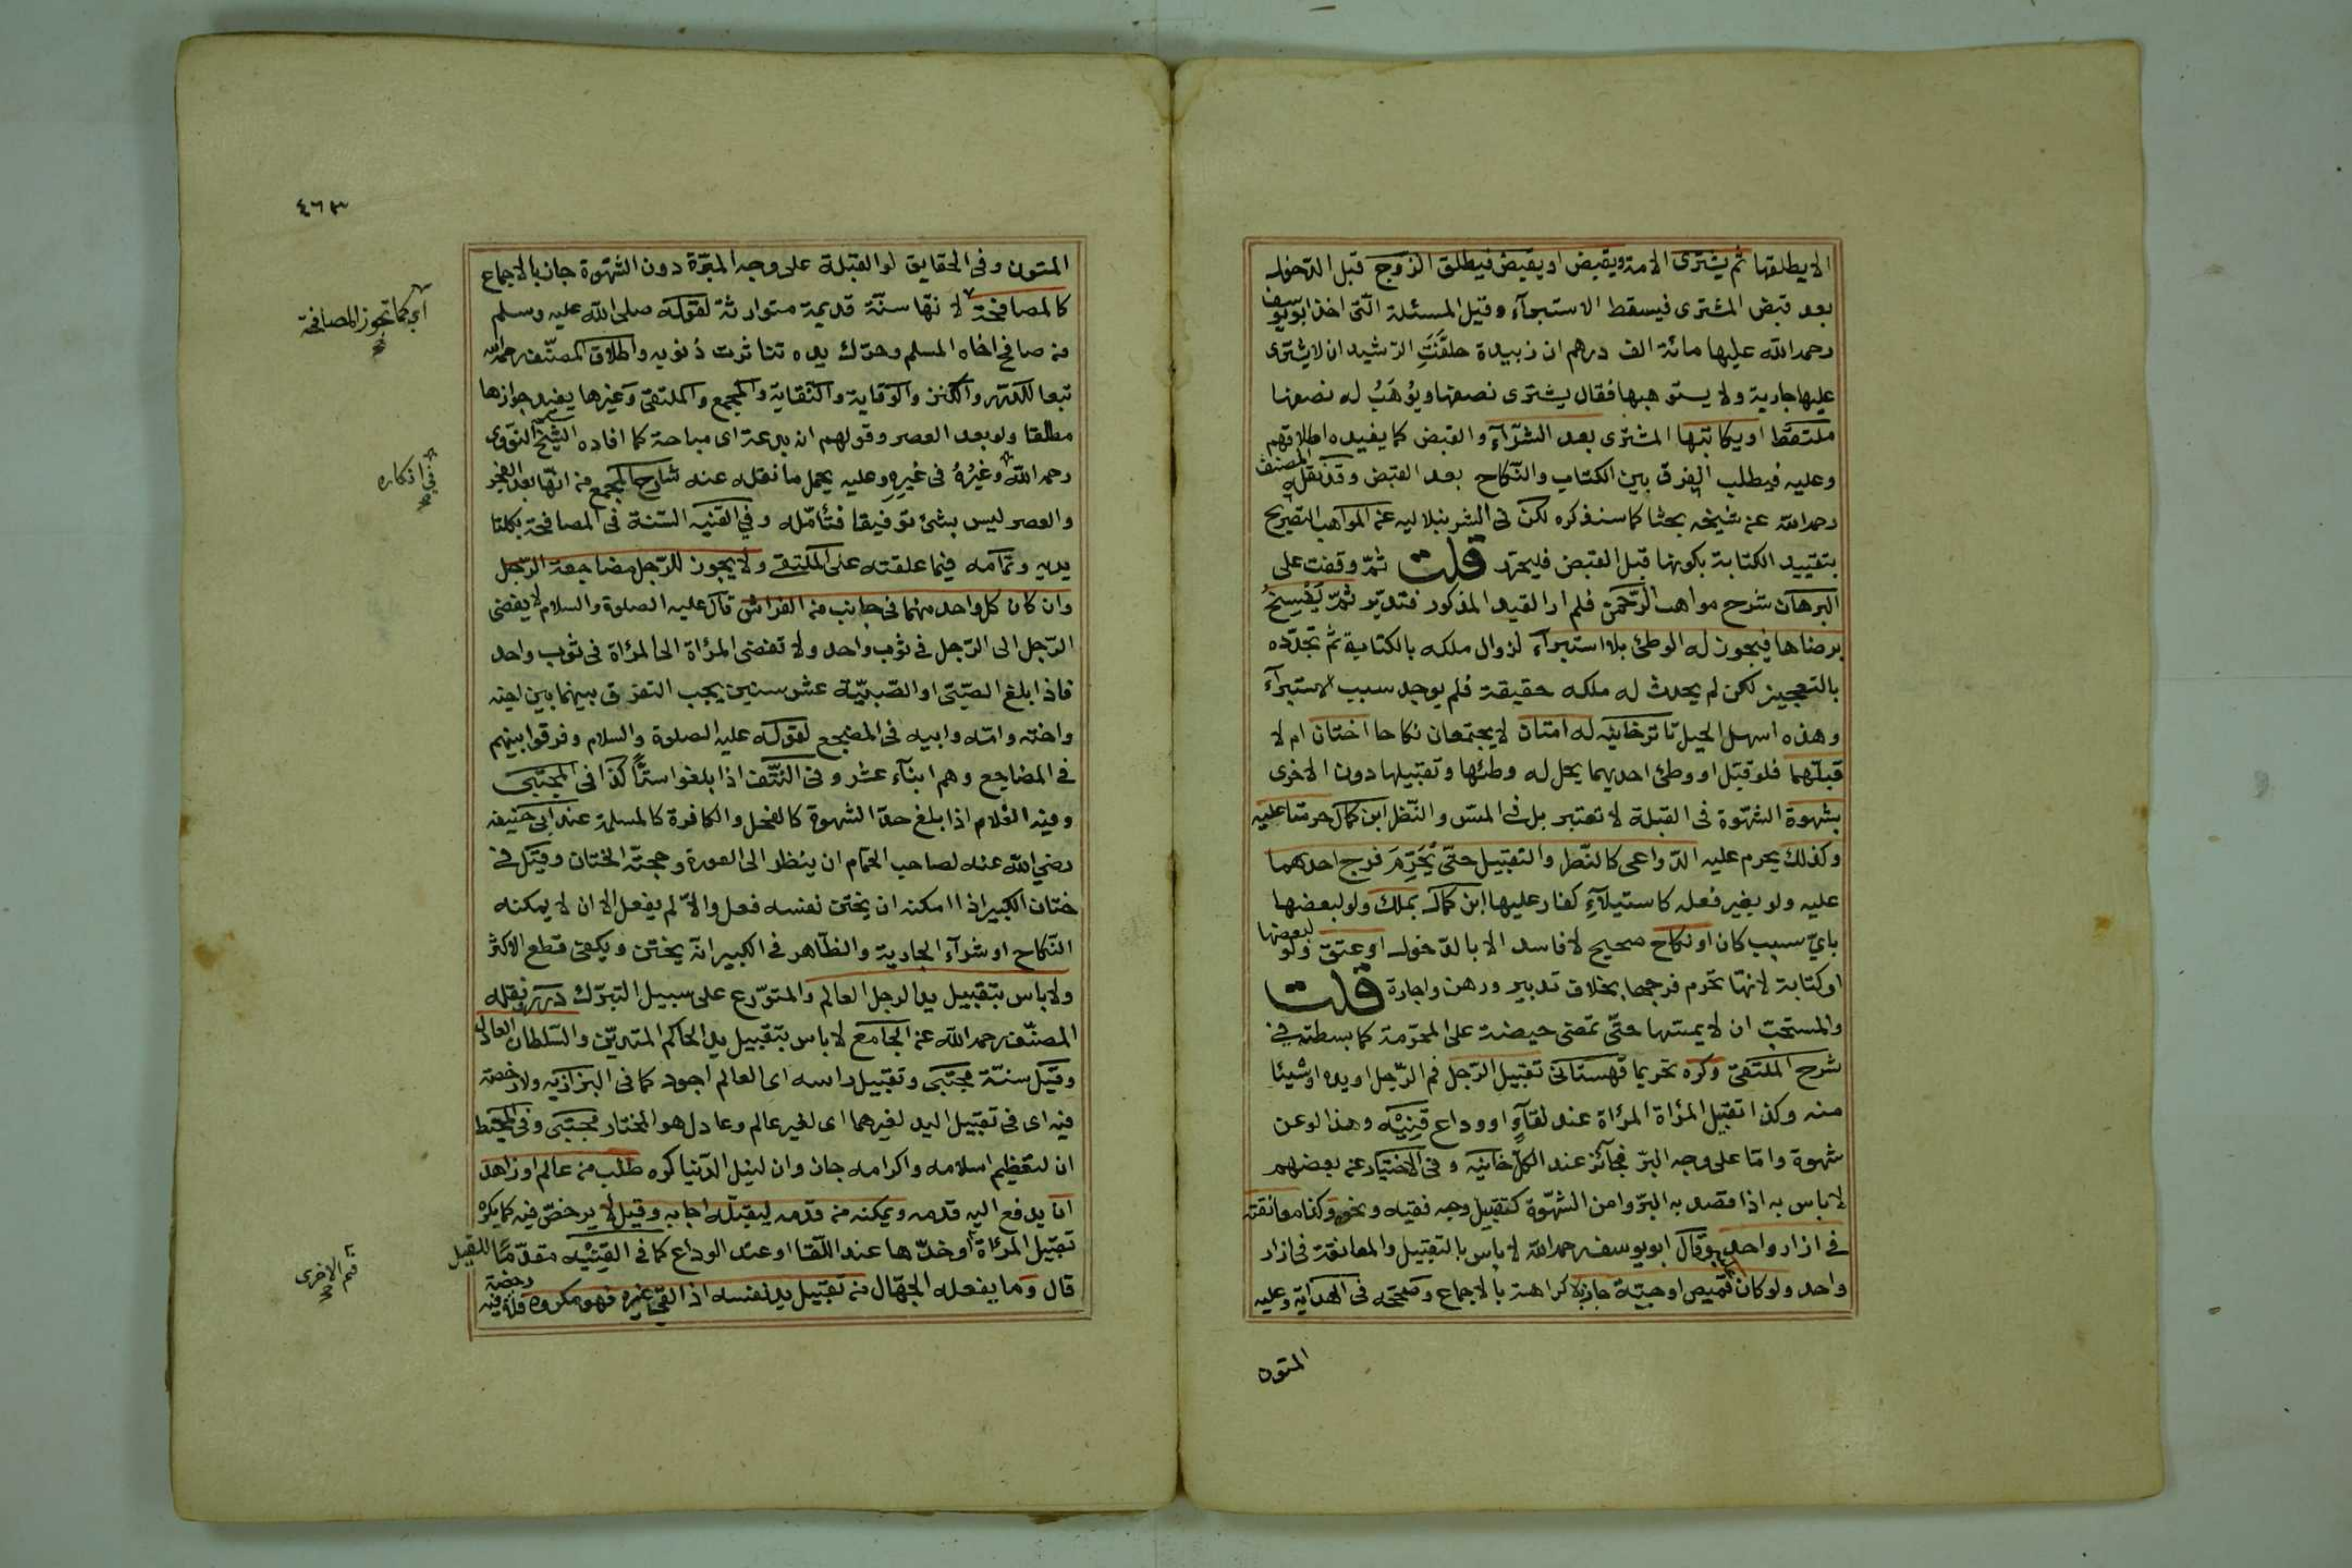 الا يطلقها ثم يشترى الامة ويقبض او يقبض فيطلق الزوج قبل الدخول
بعد قبض المشترى فيسقط الاستبرآء وقيل المسئلة التى اخذ ابو يوسف
رحمه الله عليها مائة الف درهم ان زبيدة حلفت الرشيد ان لا يشترى
عليها جارية ولا يستوهبها فقال يشترى نصفها ويوهب له نصفها
ملتقط او يكاتبها المشترى بعد الشرآء والقبض كما يفيده اطلاقهم
وعليه فيطلب الفرق بين الكتاب والنكاح بعد القبض وقد نقله المصنف
رحمه الله عن شيخه بحثا كما سنذكره لكن فى الشرنبلاليه عن المواهب التصريح
بتقييد الكتابة بكونها قبل القبض فليحرر قلت ثم وقفت على
البرهان شرح مواهب الرحمن فلم ار القيد المذكور فتدبر ثم يفسخ
برضاها فيجوز له الوطئ بلا استبرآء لزوال ملكه بالكتابة ثم تجدده
بالتعجيز لكن لم يحدث له ملكه حقيقة فلم يوجد سبب الاستبرآء
وهذه اسهل الحيل تاترخانيه له امتان لا يجتمعان نكاحا اختان ام لا
قبلهما فلو قبل او وطئ احديهما يحل له وطئها وتقبيلها دون الاخرى
بشهوة الشهوة فى القبلة لا تعتبر بل فى المس والنظر ابن كمال حرمتا عليه
وكذلك يحرم عليه الدواعى كالنظر والتقبيل حتى يحرم فرج احدهما
عليه ولو بغير فعله كاستيلآء كفار عليها ابن كمال بملك ولو لبعضها
باى سبب كان او نكاح صحيح لا فاسد الا بالدخول او عتق ولو لبعضها
او كتابة لانها تحرم فرجها بخلاف تدبير ورهن واجارة قلت
والمستحب ان لا يمسها حتى تمضى حيضة على المحرمة كما بسطته فى
شرح الملتقى وكره تحريما قهستانى تقبيل الرجل فم الرجل او يده او شيئا
منه وكذا تقبيل المرأة المرأة عند لقآء او وداع قنيه وهذا لو عن
شهوة واما على وجه البر فجائز عند الكل خانيه وفى الاختيار عن بعضهم
لا باس به اذا قصد به البر وامن الشهوة كتقبيل وجه فقيه ونحوه وكذا معانقته
فى ازار واحد وقال ابو يوسف رحمه الله لا باس بالتقبيل والمعانقة فى ازار
واحد ولو كان قميص او جبة جاز بلا كراهة بالاجماع وصححه فى الهداية وعليه
المتون
٤٦٣
المتون وفى الحقايق لو القبلة على وجه المبرة دون الشهوة جاز بالاجماع
كالمصافحة لانها سنة قديمة متوارثة لقوله صلى الله عليه وسلم
من صافح اخاه المسلم وحرك يده تناثرت ذنوبه واطلاق المصنف رحمه الله
تبعا للدرر والكنز والوقاية والنقاية والمجمع والملتقى وغيرها يفيد جوازها
مطلقا ولو بعد العصر وقولهم انه بدعة اى مباحة كما افاده الشيخ النووى
رحمه الله وغيره فى غيره وعليه يحمل ما نقله عنه شارح المجمع من انها بعد الفجر
والعصر ليس بشئ توفيقا فتأمله وفى القنيه السنة فى المصافحة بكلتا
يديه وتمامه فيما علقته على الملتقى ولا يجوز للرجل مضاجعة الرجل
وان كان كل واحد منهما فى جانب من الفراش قال عليه الصلوة والسلام لا يفضى
الرجل الى الرجل فى ثوب واحد ولا تفضى المرأة الى المرأة فى ثوب واحد
فاذا بلغ الصبى او الصبية عشر سنين يجب التفرق بينهما بين اخيه
واخته وامه وابيه فى المضجع لقوله عليه الصلوة والسلام وفرقوا بينهم
فى المضاجع وهم ابنآء عشر وفى النتف اذا بلغوا ستا كذا فى المجتبى
وفيه الغلام اذا بلغ حد الشهوة كالفحل والكافرة كالمسلمة عند ابى حنيفه
رضي الله عنه لصاحب الحمام ان ينظر الى العورة وحجته الختان وقيل فى
ختان الكبير اذا امكنه ان يختن نفسه فعل والا لم يفعل الا ان لا يمكنه
النكاح او شرآء الجارية والظاهر فى الكبير انه يختن ويكفى قطع الاكثر
ولا باس بتقبيل يد الرجل العالم والمتورع على سبيل التبرك درر ونقله
المصنف رحمه الله عن الجامع لا باس بتقبيل يد الحاكم المتدين والسلطان العادل
وقيل سنة مجتبى وتقبيل راسه اى العالم اجود كما فى البزازيه ولا رخصة
فيه اى فى تقبيل اليد لغيرهما اى لغير عالم وعادل هو المختار مجتبى وفى المحيط
ان لتعظيم اسلامه واكرامه جاز وان لنيل الدنيا كره طلب من عالم او زاهد
ان يدفع اليه قدمه ويمكنه من قدمه ليقبله اجابه وقيل لا يرخص فيه كما يكره
تقبيل المرأة او خدها عند اللقا او عند الوداع كما فى القنيه مقدما للقيل
قال وما يفعله الجهال من تقبيل يد نفسه اذا لقى غيره فهو مكروه فلا رخصة فيه
اى كما تجوز المصافحة
فى اذكاره
فم الاخرى